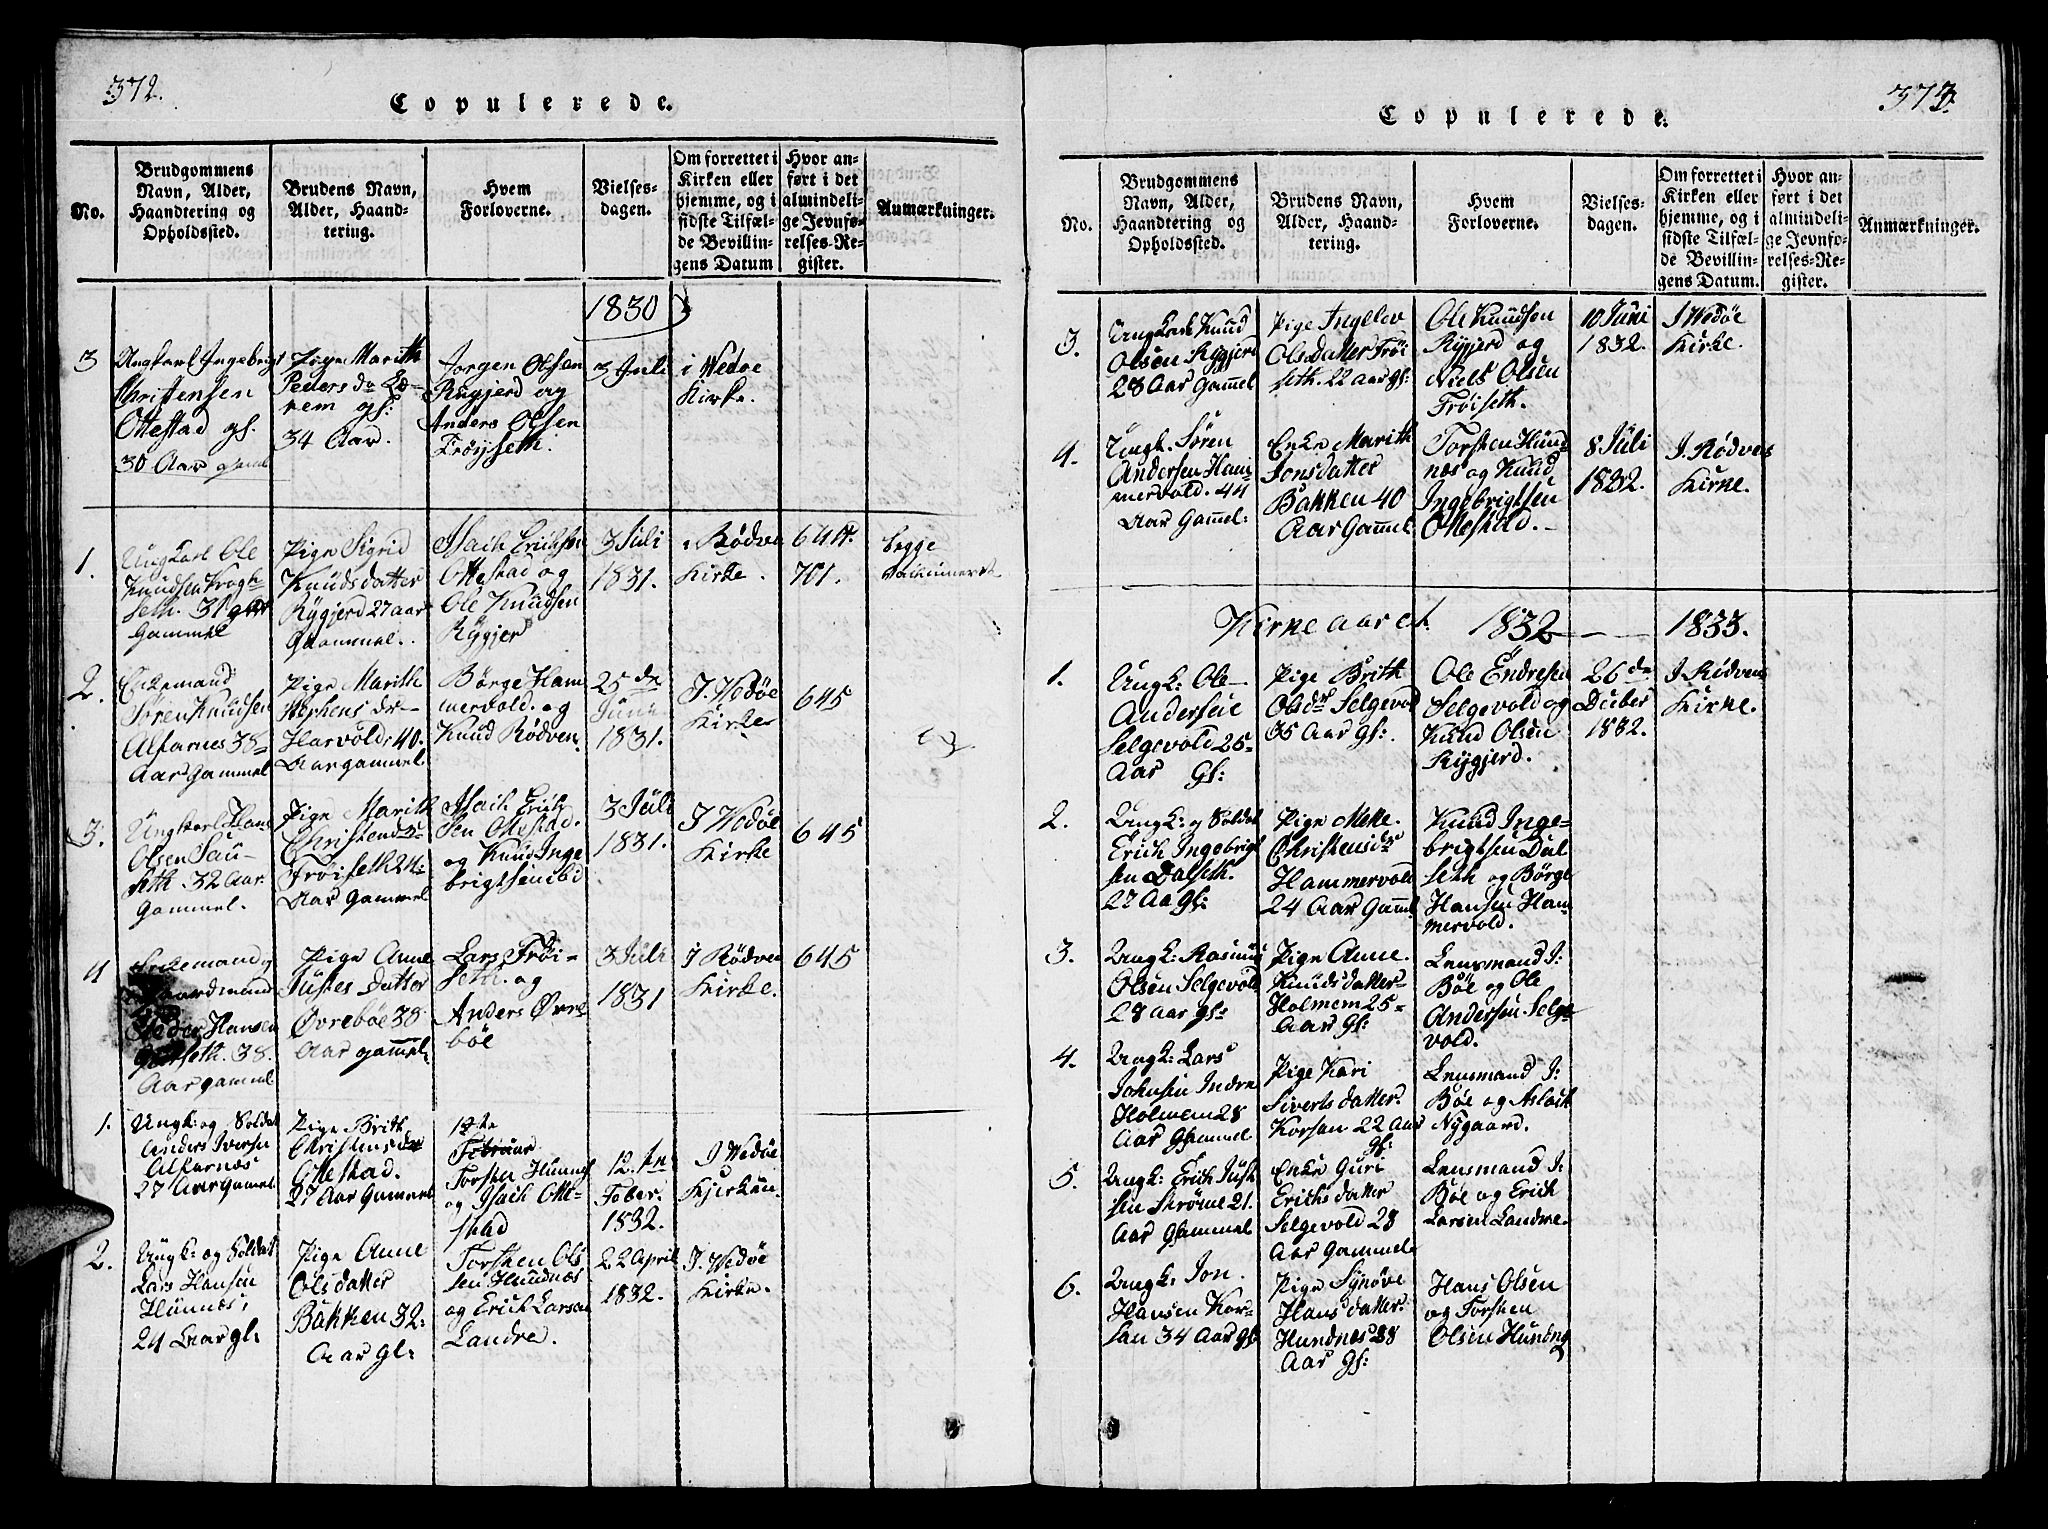 372.
Copulerede.
No.
Brudgommens
Navn, Alder,
Haandtering og
Opholdssted.
Brudens Navn,
Alder, Haand-
tering.
Hvem
Forloverne.
Vielses-
dagen.
Om forrettet i
Kirken eller
hjemme, og i
sidste Tilfæl-
de Bevillin-
gens Datum
Hvor an-
ført i det
almindeli-
ge Jevnfø-
relses-Re-
gister.
Anmærkninger.
1830
3
Ungkarl Ingebrigt
Christensen
Ottestad gs.
30 Aar
Pige Marith
Peders da
gs:
34 Aar.
Jørgen Olsen
Rygjerd og
Anders Olsen
Frøyseth.
3 Juli
i Wedøe
Kirke.
1.
Ungkarl Ole
Knudsen
seth. 31
Gammel
Pige Sigrid
Knudsdatter
Rygjerd 27 aar
Gammel.
Isach Erichsen
Ottestad og
Ole Knudsen
Rygjer
3 Juli
1831.
i Rødven
Kirke.
644.
701.
begge
2.
Enkemand
Søren Knudsen
Alfarnes 38
Aar Gammel
Pige Marith
Stephens dr
Harvold 40.
Aar gammel
Børge Ham
mervold. og
Knud Rødven
25 de
Juni
1831.
I. Wedøe
Kirke
645
3.
Ungkarl Hans
Olsen Sau-
seth. 32 Aar.
Gammel.
Pige Marith
Christensdr
Frøiseth 24
Aar Gammel
Isach Erich
sen Ottestad.
og Knud Inge
brigtsen ibd
3 Juli
1831.
I Wedøe
Kirke
645
4
Enkemand og
Gaardmand
Peder Hansen
38.
Aar gammel
Pige Anne
Justes Datter
Øvrebøe 38
Aar gammel
Lars Frøi-
seth. og
Anders Øvre
bøe
3 Juli
1831
I Rødven
Kirke.
645
1.
Ungk: og Soldat
Anders Iversen
Alfarnæs
27 Aar Gamel
Pige Brith
Christensdr
Ottestad.
27 Aar Gammel
12te
Februar
Torsten Hunnes
og Isach Otte-
stad
12. te
Feber.
1832.
I Wedøe
Kjerken.
2.
Ungk: og Soldat
Lars Hansen
Hunnæs,
24 Aar gl:
Pige Anne
Olsdatter
Bakken 32
Aar gl:
Torsten Ols
sen Hundnæs
og Erich Larsen
Landre.
22 April
1832.
I. Wedøe
Kirke.
373.
Copulerede.
No.
Brudgommens
Navn, Alder,
Haandtering og
Opholdssted.
Brudens Navn,
Alder, Haand-
tering.
Hvem
Forloverne.
Vielses-
dagen.
Om forrettet i
Kirken eller
hjemme, og i
sidste Tilfæl-
de Bevillin-
gens Datum.
Hvor an-
ført i det
almindeli-
ge Jevnfø-
relses-Re-
gister.
Anmærkninger.
3.
Ungkarl Knud
Olsen Rygjerd
28 Aar Gammel
Pige Ingelev
Olsdatter Frøi
seth. 22 aar gs:
Ole Knudsen
Rygjerd og
Niels Olsen
Frøiseth.
10 Juni
1832.
I Wedøe
Kirke.
4.
Ungk. Søren
Andersen Ham
mervold. 44
Aar Gammel:
Enke Marith
Jonsdatter
Bakken 40
Aar Gammel
Torsten Hund
næs og Knud
Ingebrigtsen
Ottestad.
8 Juli
1832.
I. Rødven
Kirke.
Kirkeaaret 1832 — 1833.
1.
Ungk: Ole
Andersen
Selgevold 25
Aar Gs:
Pige Brith
Olsdr Selgevold
35 Aar Gs:
Ole Endresen
Selgevold og
Knud Olsen
Rygjerd.
26 de
Decber
1832.
I. Rødven
Kirke.
2.
Ungk: og Soldat
Erich Ingebrigt
sen Dalseth.
27 Aa Gs:
Pige Mette
Christensdr
Hammervold
24 Aar Gammel
Knud Inge-
brigtsen Dal
seth og Børge
Hansen Ham
mervold.
3.
Ungk: Rasmus
Olsen Selgevold
28 Aar gs:
Pige Anne
Knudsdatter
Holmem 25
Aar Gs:
Lensmand I:
Bøe og Ole
Andersen Selge
vold.
4.
Ungk: Lars
Johnsen Indre
Holmem 28
Aar Gammel
Pige Kari
Siverts datter
Korsan 22 Aar
gs:
Lensmand I:
Bøe og Aslach
Nygaard.
5.
Ungk: Erich Just
sen Strøme 21.
Aar Gammel
Enke Guri
Erichs datter
Selgevold 28
Aar Gammel
Lensmand I:
Bøe og Erich
Larsen Landre.
6.
Ungk: Jon
Hansen Kor-
san 34 Aar gs
Pige Synøve
Hans datter
Hundnæs 28
Aar Gs:
Hans Olsen
og Torsten
Olsen Hundnæs